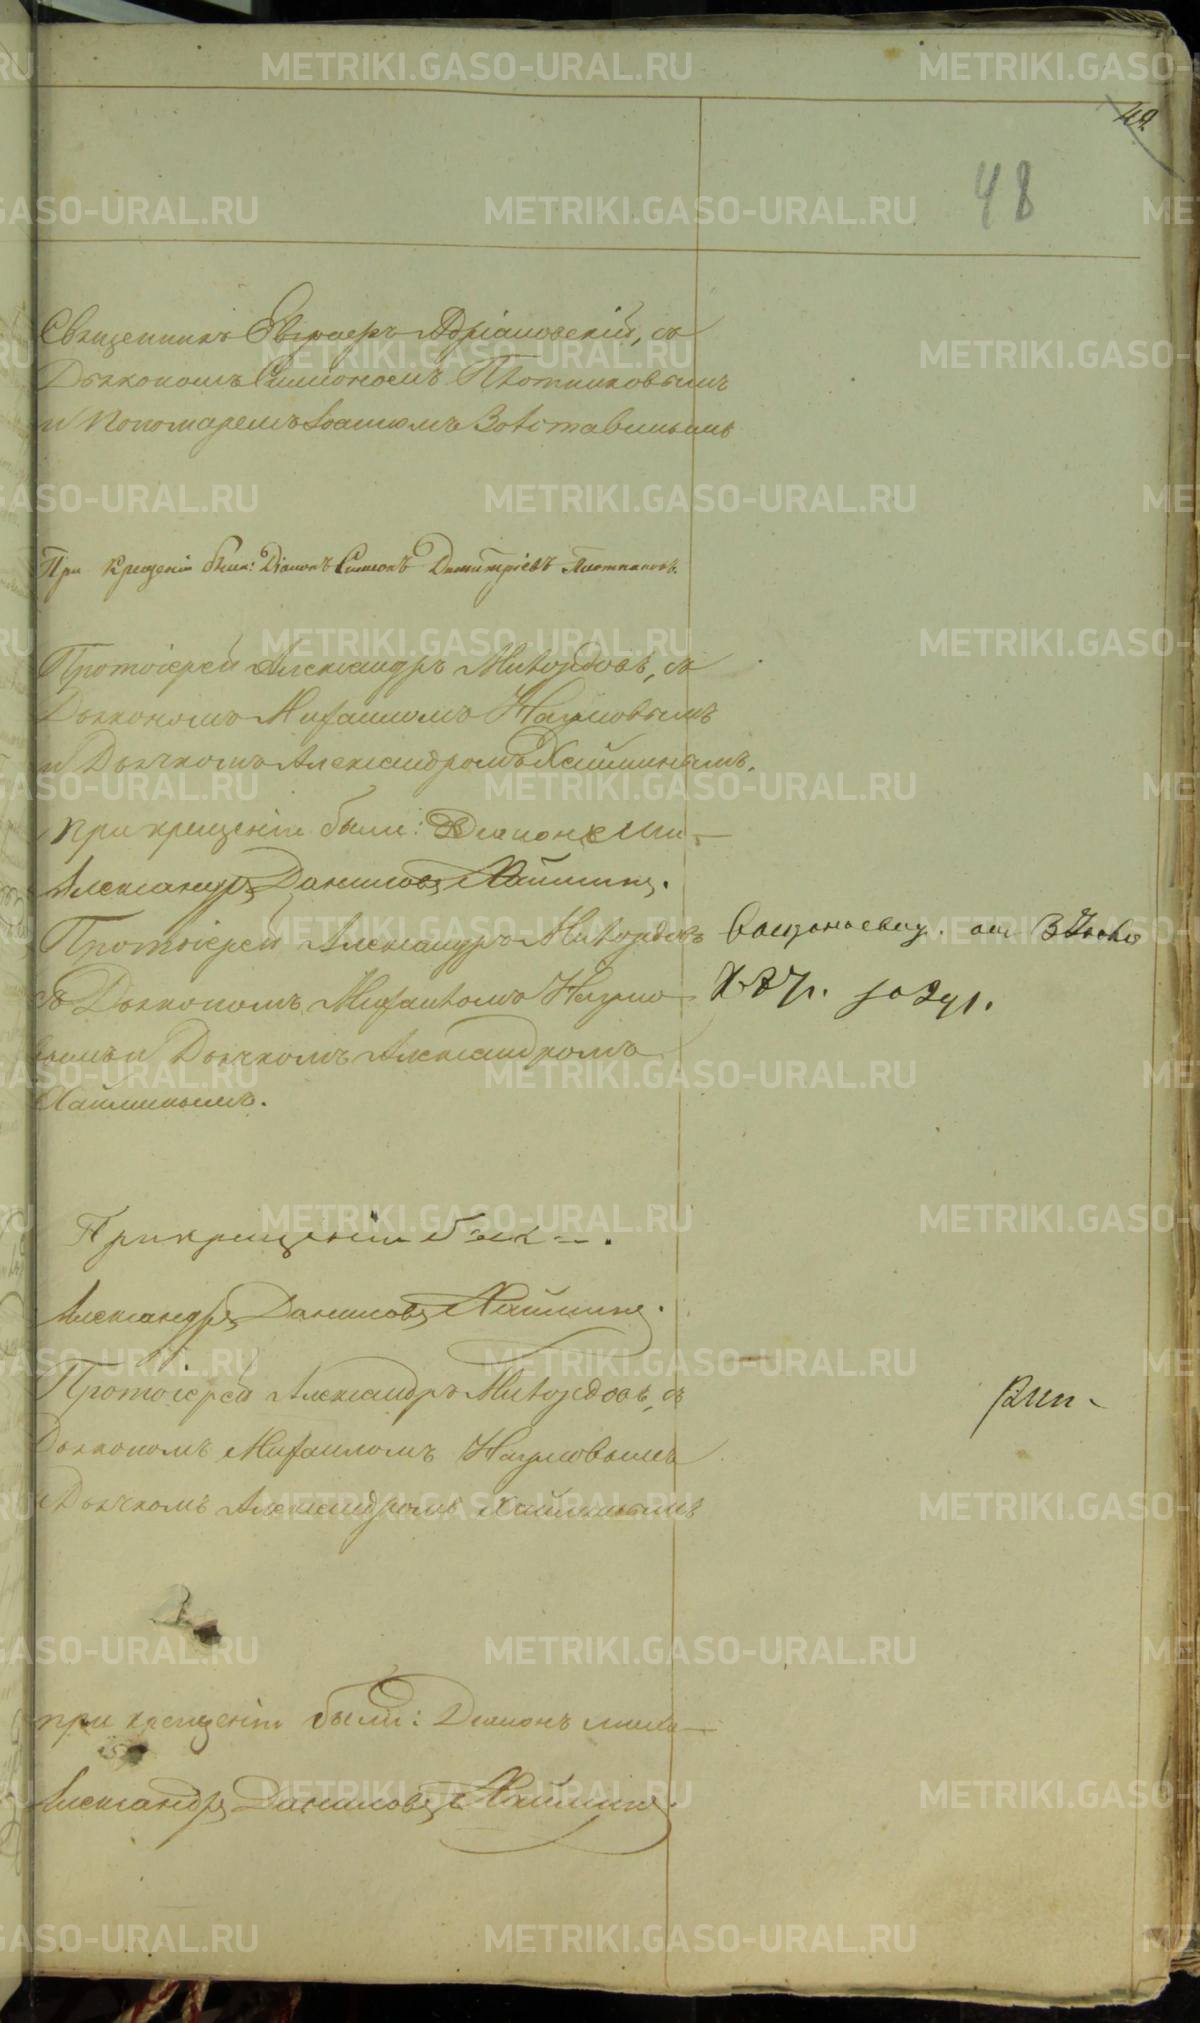 49
48
Священникъ Евграфъ Адріановскій, съ
Дьякономъ Симеономъ Плотниковымъ
и Пономаремъ Іоанномъ
При крещеніи были: Діаконъ Симеонъ Димитріевъ Плотниковъ.
Протоіерей Александръ Милордовъ, съ
Дьякономъ Михаиломъ Наумовымъ
и Дьячкомъ Александромъ Хайминымъ.
При крещеніи были: Діаконъ
Александръ Даниловъ Хайминъ.
Протоіерей Александръ Милордовъ
съ Дьякономъ Михаиломъ Наумо
вымъ и Дьячкомъ Александромъ
Хайминымъ.
При крещеніи
Александръ Даниловъ Хайминъ.
Протоіерей Александръ Милордовъ, съ
Дьякономъ Михаиломъ Наумовымъ
и Дьячкомъ Александромъ Хайминымъ
при крещеніи были: Діаконъ
Александръ Даниловъ Хайминъ.
METRIKI.GASO-URAL.RU